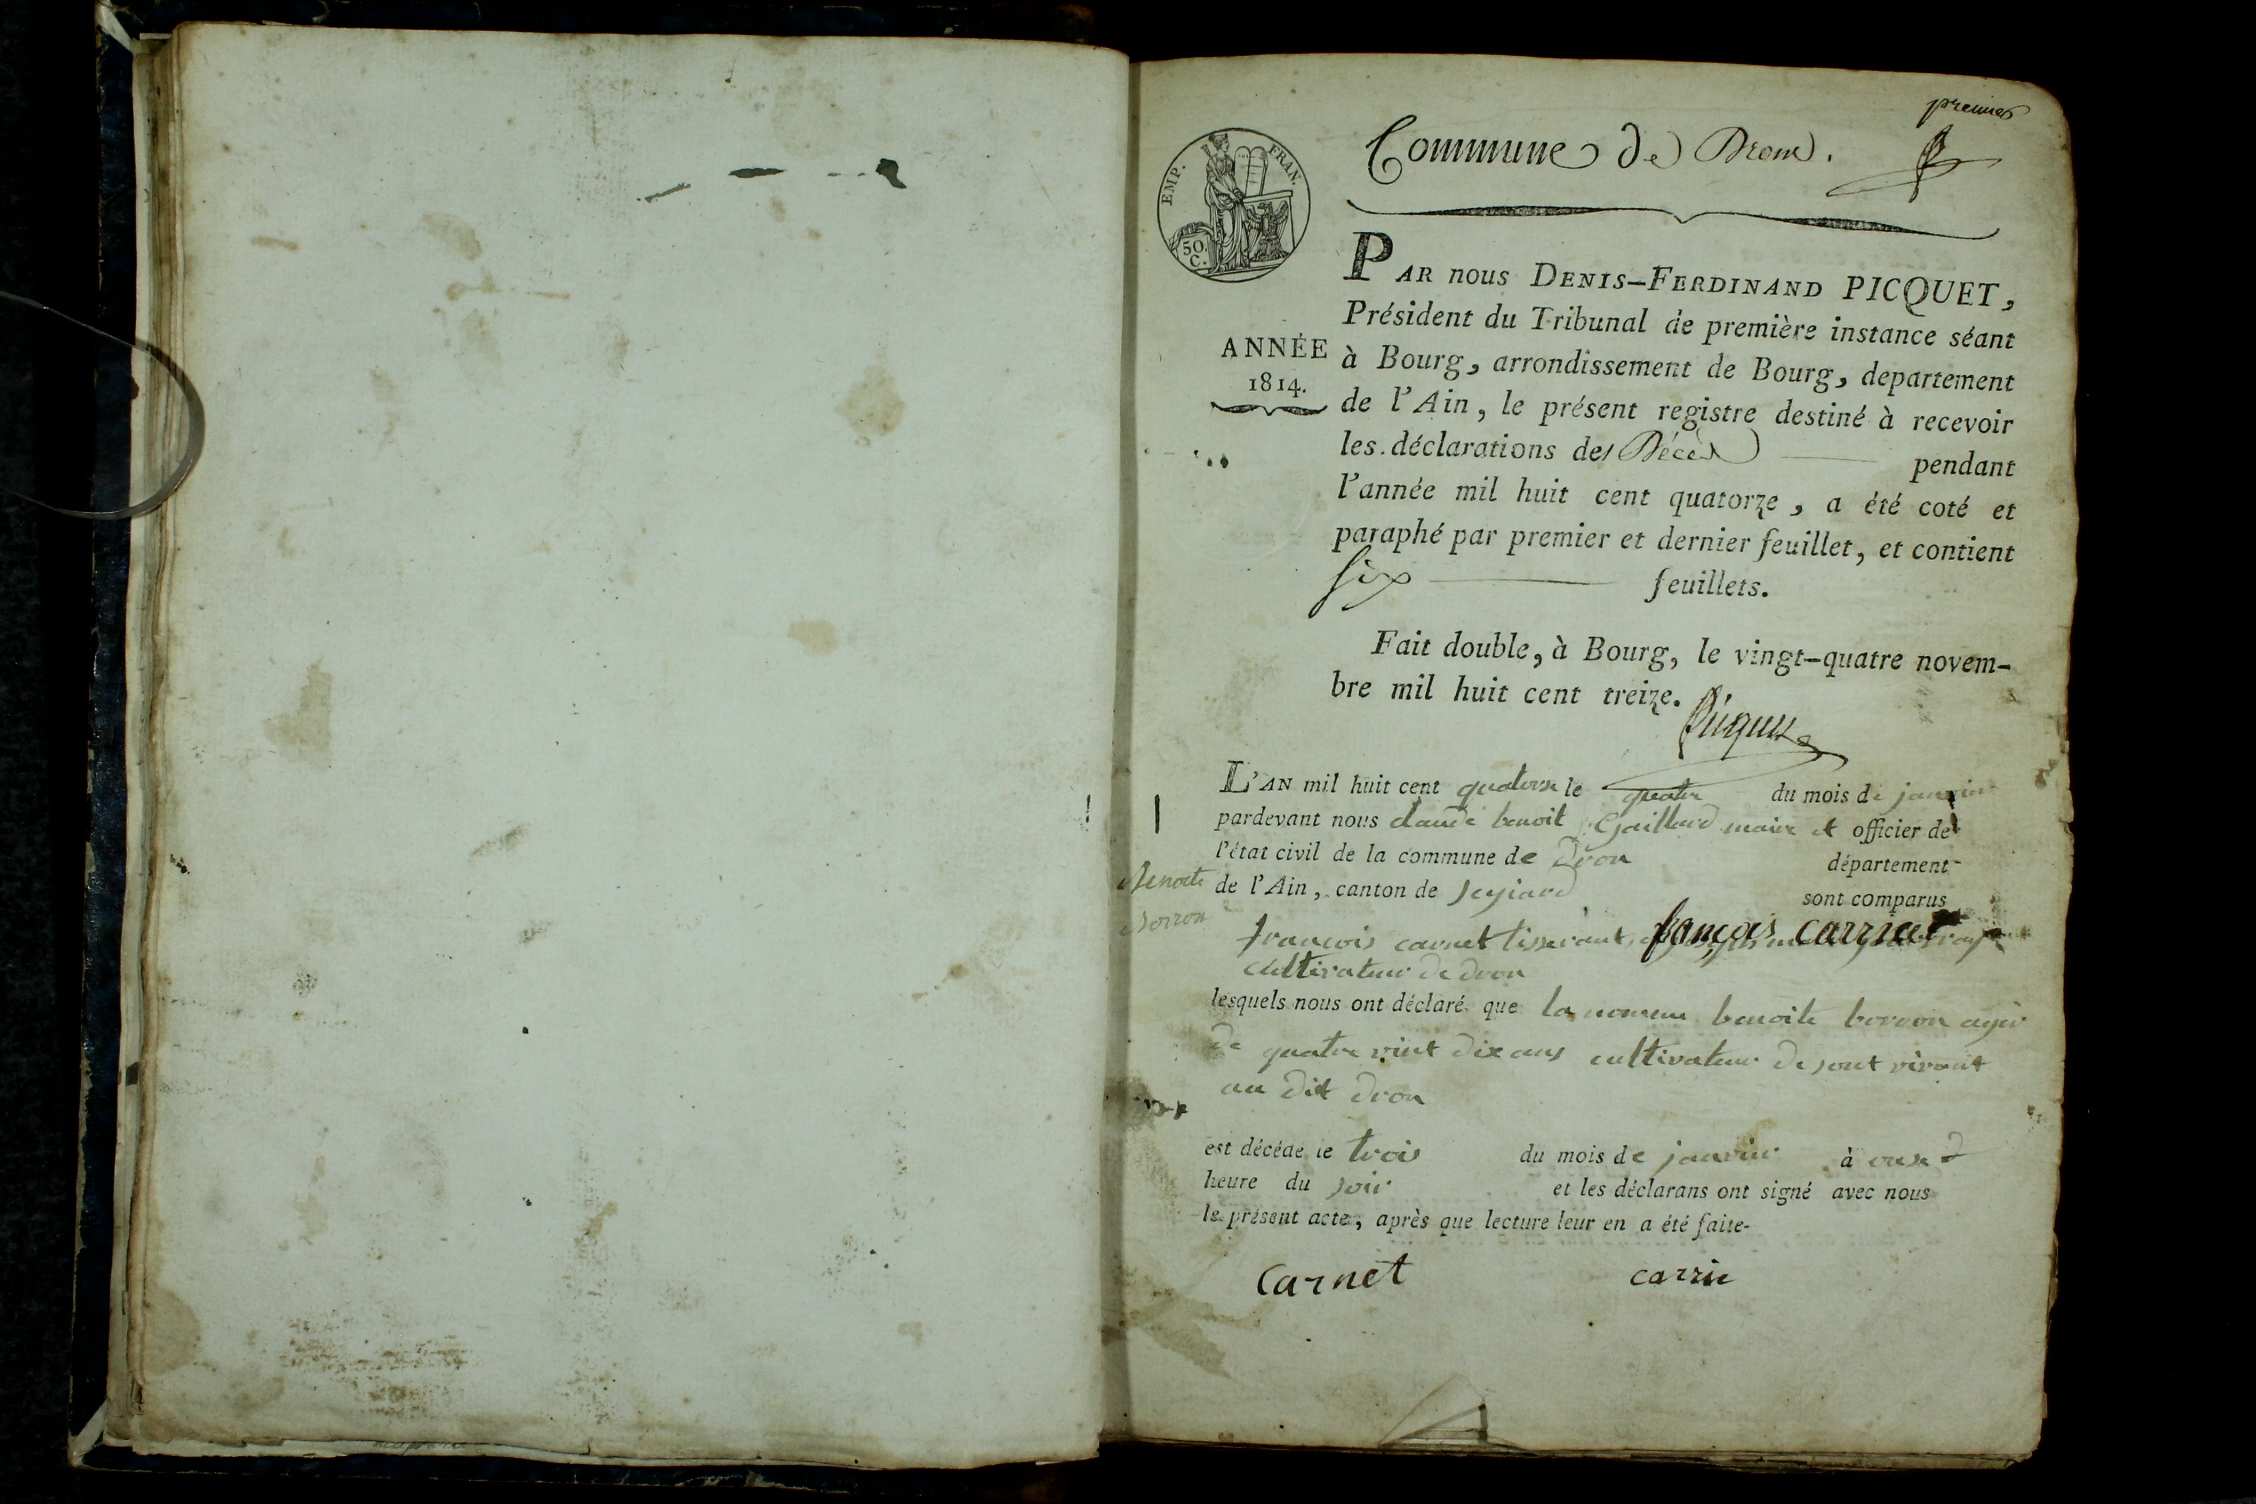 premier
Commune de Drom.
EMP. FRAN.
50.
C.
PAR nous DENIS-FERDINAND PICQUET,
Président du Tribunal de première instance séant
à Bourg, arrondissement de Bourg, departement
de l'Ain, le présent registre destiné à recevoir
les déclarations des Décès pendant
l'année mil huit cent quatorze, a été coté et
paraphé par premier et dernier feuillet, et contient
six feuillets.
ANNÉE
1814.
Fait double, à Bourg, le vingt-quatre novem-
bre mil huit cent treize.
Picquet
L'AN mil huit cent quatorse le quatre du mois de janvier
pardevant nous claude benoit Gaillard maire et officier de
l'état civil de la commune de Dron département
de l'Ain, canton de seyiard sont comparus
Benoite
Borron
francois carnet tisserant françois carrier
cultivateur de dron
lesquels nous ont déclaré que la nomme benoite borron agée
de quatre vint dix ans cultivateur de sont vivant
au dit dron
est décéde le trois du mois de janvier à onse
heure du soir et les déclarans ont signé avec nous
le présent acte, après que lecture leur en a été faite.
Carnet carrie